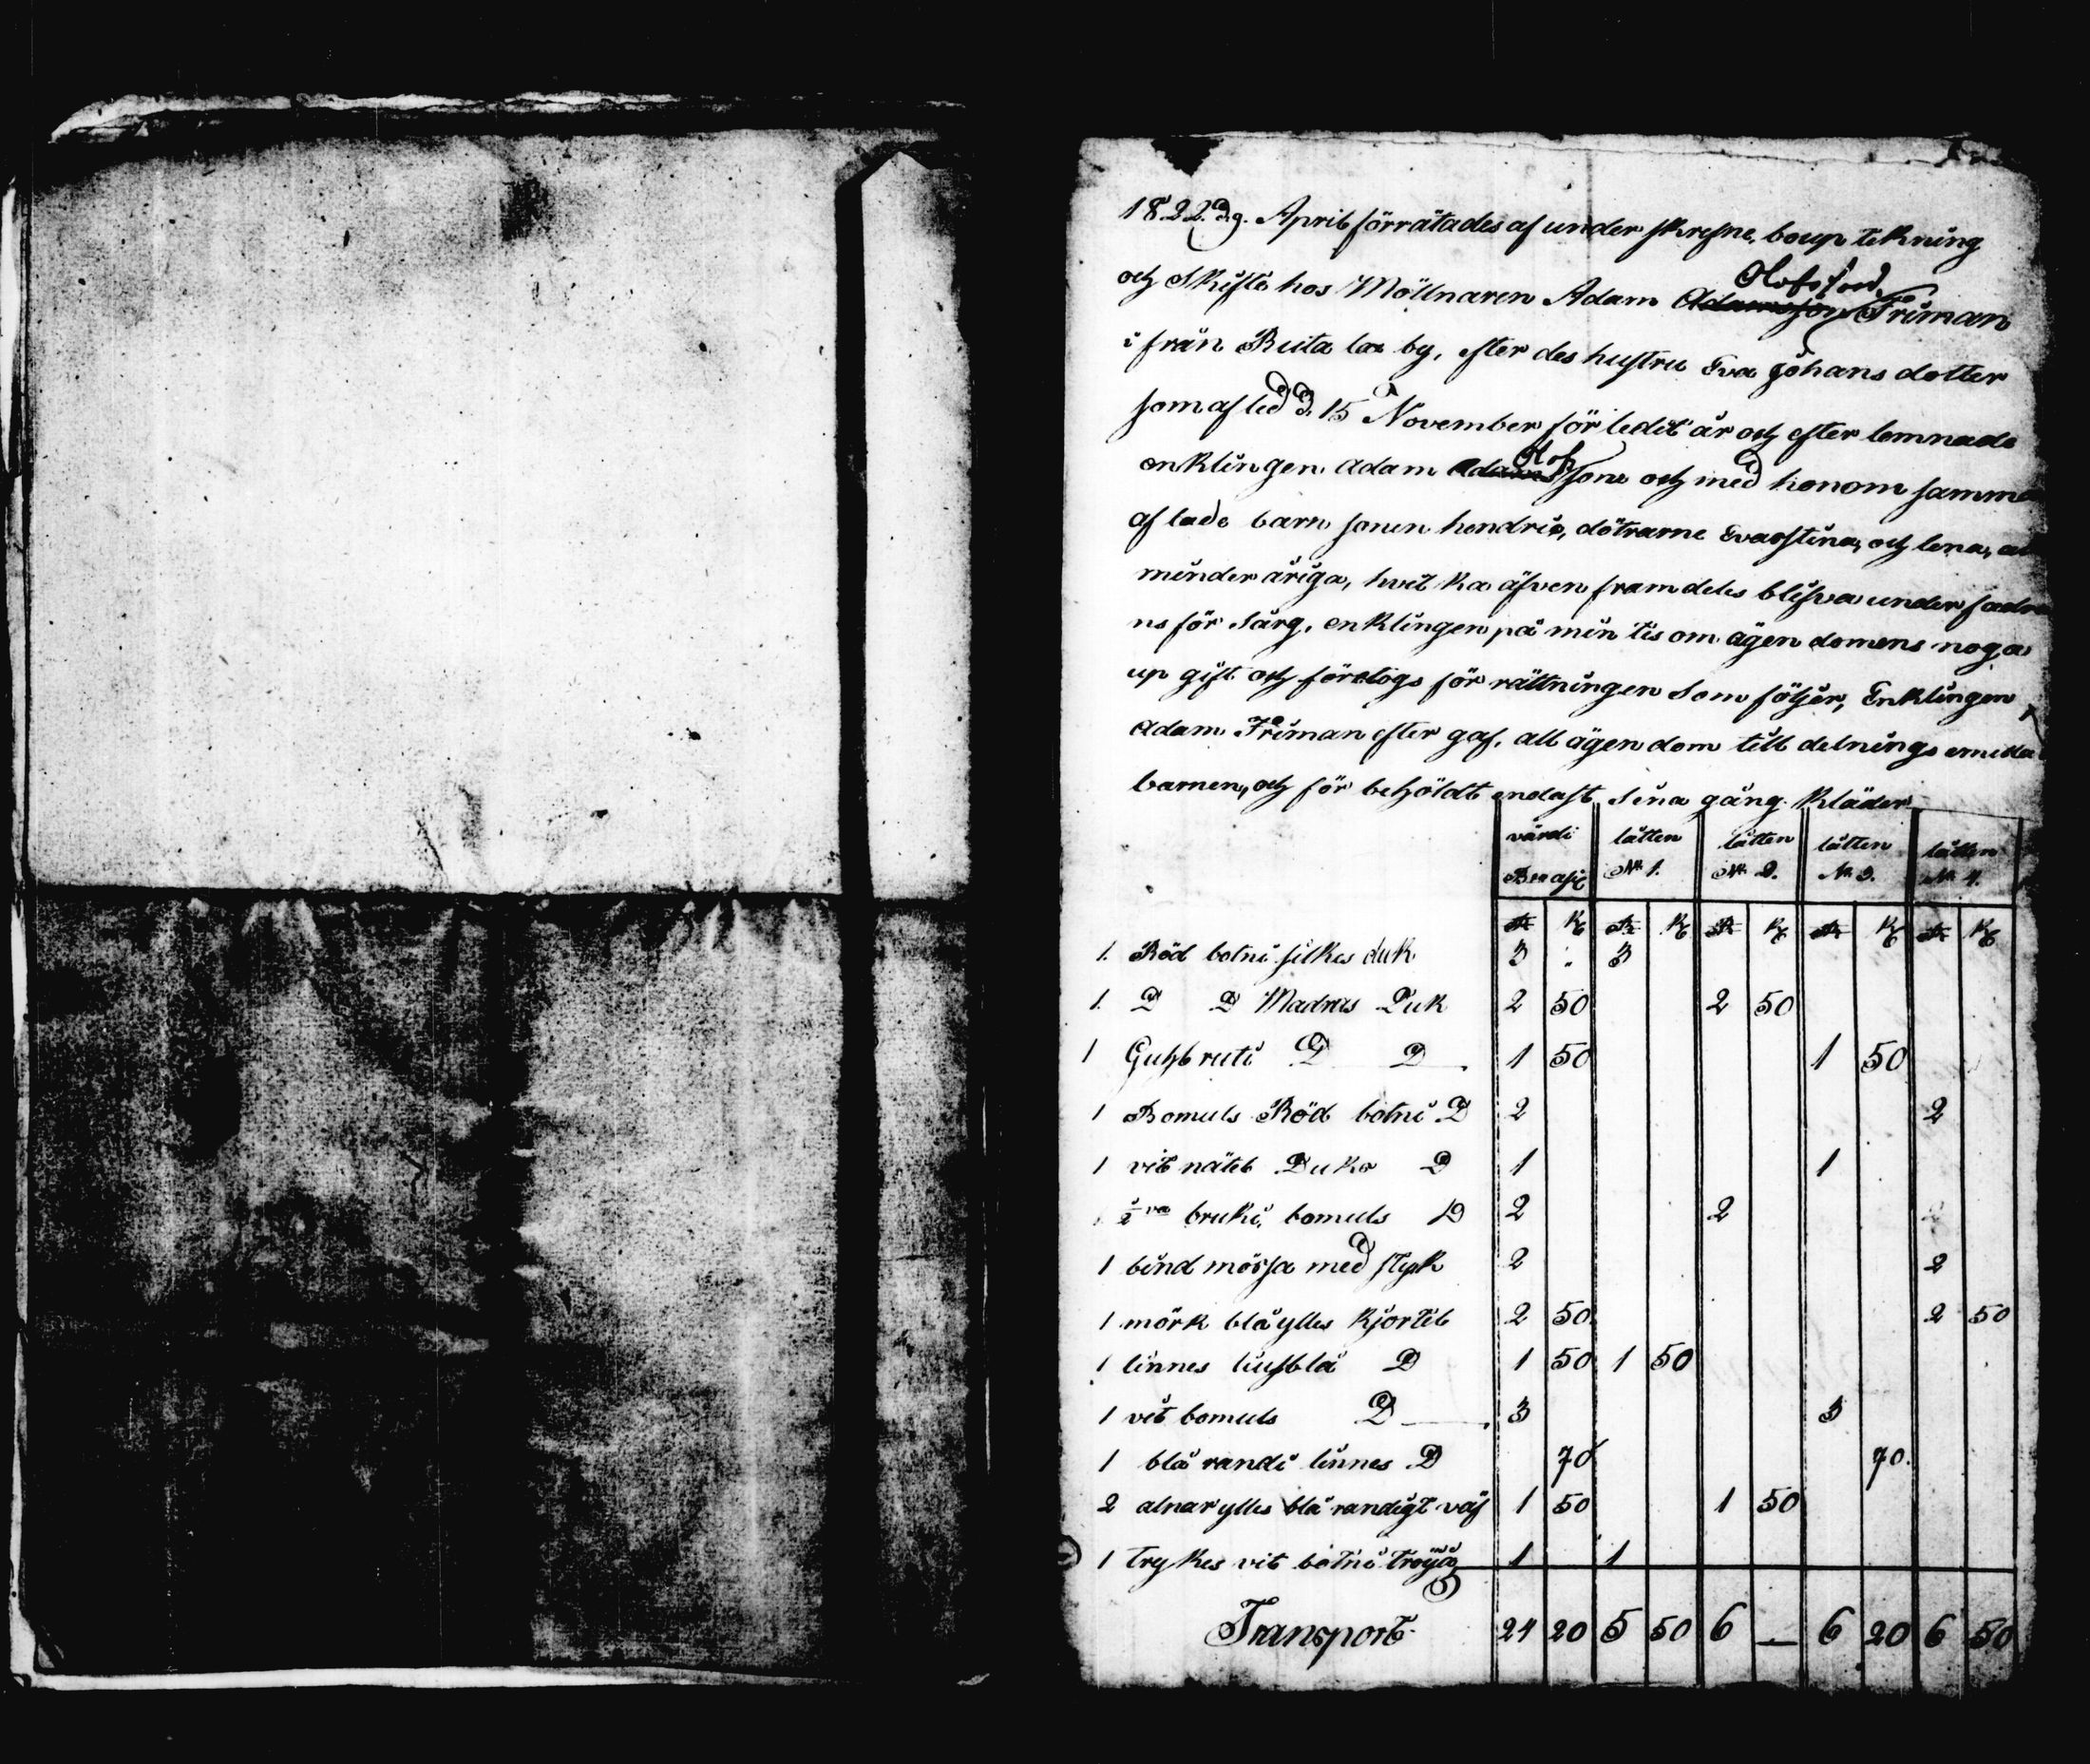 1822 d 9. April förrätades af under skrefne, boup tekning
och Skifte hos Möllnaren Adam Adamsson Olofsson Friman
i från Ruta lax by, efter des hustru Eva Johans dotter
som afled d. 15 November för ledit år och efter lemnade
enklingen Adam Adams Olofssone och med honom samman
aflade barn sonen hendric, dötrarne Evastina, och lena, al
minder åriga, hvil ka äfven framdeles blifva under fadre
ns för Sårg, enklingen på min tis om ägen domens noga
up gift och företogs för rättningen Som följer, Enklingen
Adam Friman efter gaf, all ägen dom till delnings emella
barnen, och för behöldt endast Sina gång kläder
värde låtten låtten låtten låtten
Bco asig N 1. N 2. N 3. N 4.
R K R K R K R K R K
1. Röd botni silkes duk 3 : 3
1. D D Madras Duk 2 50 2 50
1 Gulbruti D D 1 50 1 50
1 Bomuls Röd botni D 2 2
1 vit nätel Duks D 1 1
1 ½ va bruki bomuls D 2 2
1 bind mössa med styk 2 2
1 mörk blå ylles Kjortel 2 50 2 50
1 linnes liusblå D 1 50 1 50
1 vit bomuls D 3 3
1 blå randi linnes D 70 70.
2 alnar ylles blå randigt väf 1 50 1 50
1 trykes vit botni tröija 1 1
Transport 24 20 5 50 6 — 6 20 6 50